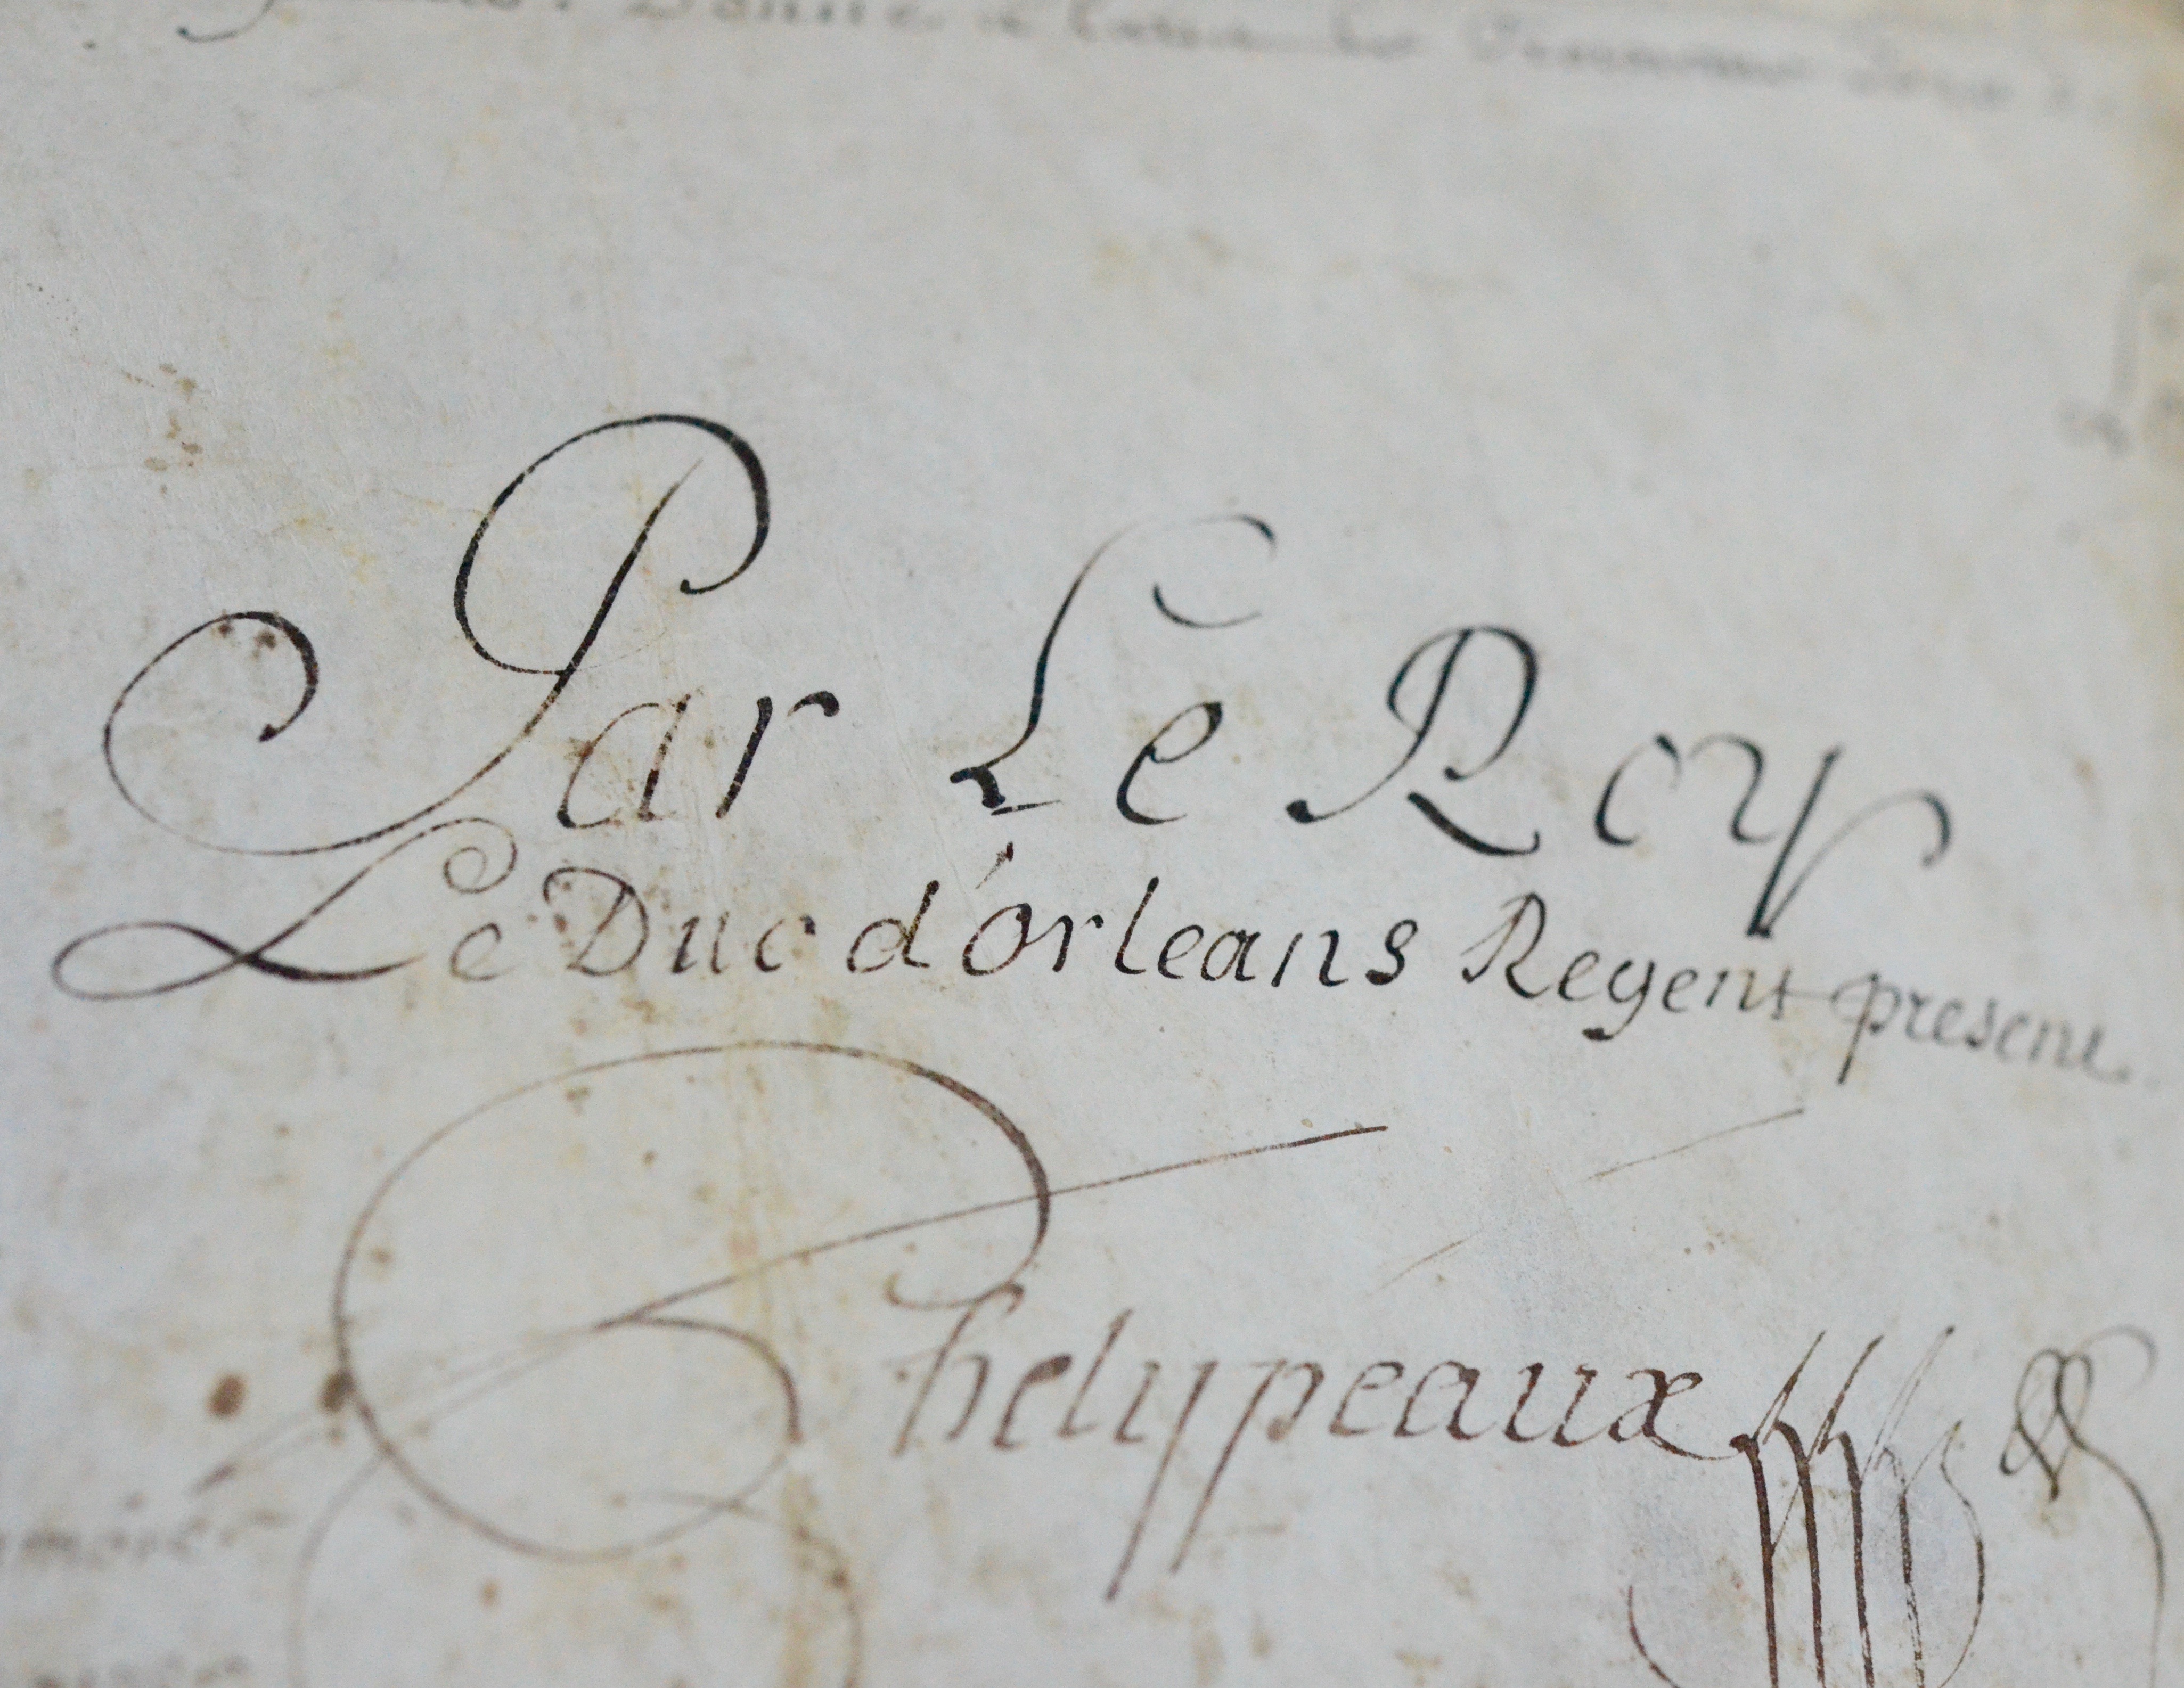 Par Le Roy
Le Duc d'orleans Regent present
Phelypeaux